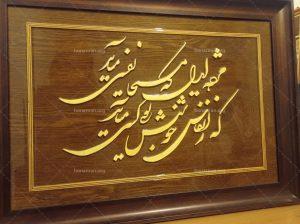 مژده ای دل که مسیحا نفسی می‌آید
که ز انفاس خوشش بوی کسی می‌آید